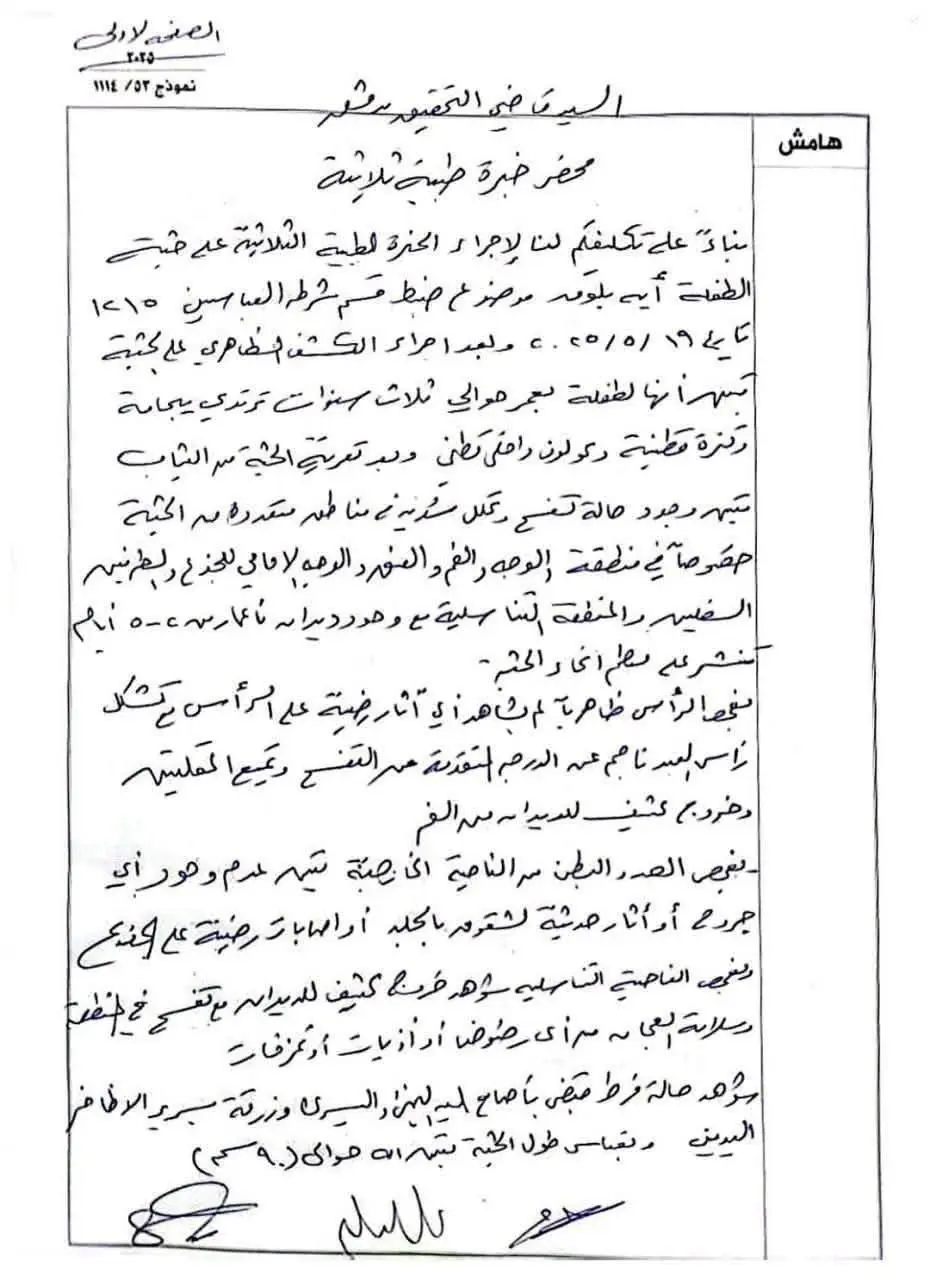 الصفحة الاولى
٢٠٢٥
نموذج ٥٣/ ١١١٤
السيد قاضي التحقيق بدمشق
هامش
محضر خبرة طبية ثلاثية
بناءً على تكليفكم لنا لإجراء الخبرة الطبية الثلاثية على جثة
الطفلة أيه موضوع ضبط قسم شرطة العباسيين ١٢١٥
تاريخ ١٩/ ٥/ ٢٠٢٥ وبعد اجراء الكشف الظاهري على الجثة
تبين أنها لطفلة بعمر حوالي ثلاث سنوات ترتدي بيجامة
وكنزة قطنية وكولون داخلي قطني وبعد تعرية الجثة من الثياب
تبين وجود حالة تفسخ وتحلل في مناطق متعددة من الجثة
خصوصاً في منطقة الوجه والفم والعنق والوجه الامامي للجذع والطرفين
السفليين والمنطقة التناسلية مع وجود ديدان بأعمار من ٢-٥ أيام
تنتشر على معظم انحاء الجثة -
بفحص الرأس ظاهرياً لم يشاهد أي آثار رضية على الرأس مع تشكل
رأس العبد ناجم عن الدرجة المتقدمة من التفسخ وتميع المقلتين
وخروج كثيف للديدان من الفم
- بفحص الصدر والبطن من الناحية الخارجية تبين عدم وجود أي
جروح أو أثار حديثة لشقوق بالجلد أو اصابات رضية على الجذع
وبفحص الناحية التناسلية شوهد خروج كثيف للديدان مع تفسخ في المنطقة
وسلامة العجان من أي رضوض أو أذيات أو تمزقات
شوهد حالة فرط تقبض بأصابع اليد اليمنى واليسرى وزرقة بسرير الاظافر
اليدين وبقياس طول الجثة تبين انه حوالي (٩٠ سم)